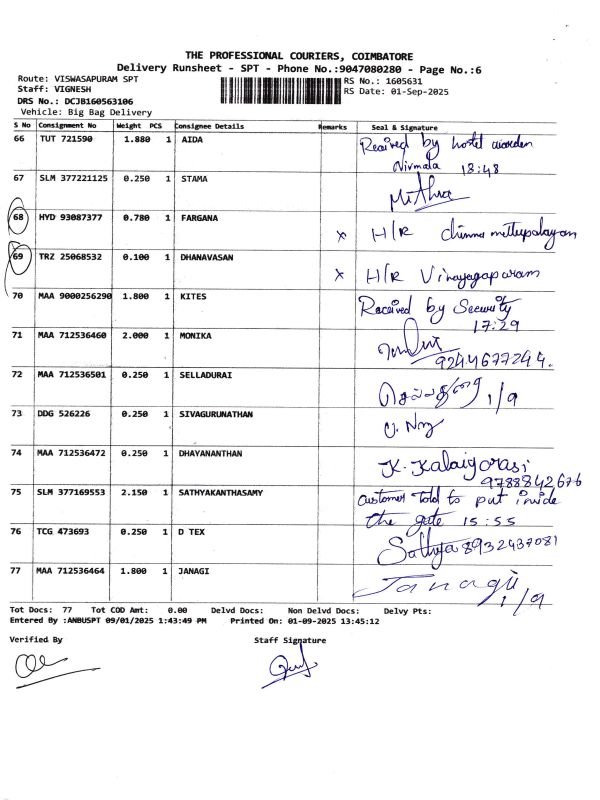 THE PROFESSIONAL COURIERS, COIMBATORE
Delivery Runsheet - SPT - Phone No.:9047080280 - Page No.:6
Route: VISWASAPURAM SPT
RS No.: 1605631
Staff: VIGNESH
RS Date: 01-Sep-2025
DRS No.: DCJB160563106
Vehicle: Big Bag Delivery
S No Consignment No Weight PCS Consignee Details Remarks Seal & Signature
66 TUT 721590 1.880 1 AIDA Received by hostel warden
Nirmala 18:48
67 SLM 377221125 0.250 1 STAMA Mithra
68 HYD 93087377 0.780 1 FARGANA x H/R chinna mettupalayam
69 TRZ 25068532 0.100 1 DHANAVASAN x H/R Vinayagapuram
70 MAA 9000256290 1.800 1 KITES Received by Security
17:29
71 MAA 712536460 2.000 1 MONIKA
9244677244.
72 MAA 712536501 0.250 1 SELLADURAI செல்லதுரை 1/9
73 DDG 526226 0.250 1 SIVAGURUNATHAN
74 MAA 712536472 0.250 1 DHAYANANTHAN K. Kalaiyarasi
9788842676
75 SLM 377169553 2.150 1 SATHYAKANTHASAMY customer told to put inside
the gate 15:55
76 TCG 473693 0.250 1 D TEX Sathya 8932437081
77 MAA 712536464 1.800 1 JANAGI Janagi
1/9
Tot Docs: 77 Tot COD Amt: 0.00 Delvd Docs: Non Delvd Docs: Delvy Pts:
Entered By :ANBUSPT 09/01/2025 1:43:49 PM Printed On: 01-09-2025 13:45:12
Verified By Staff Signature